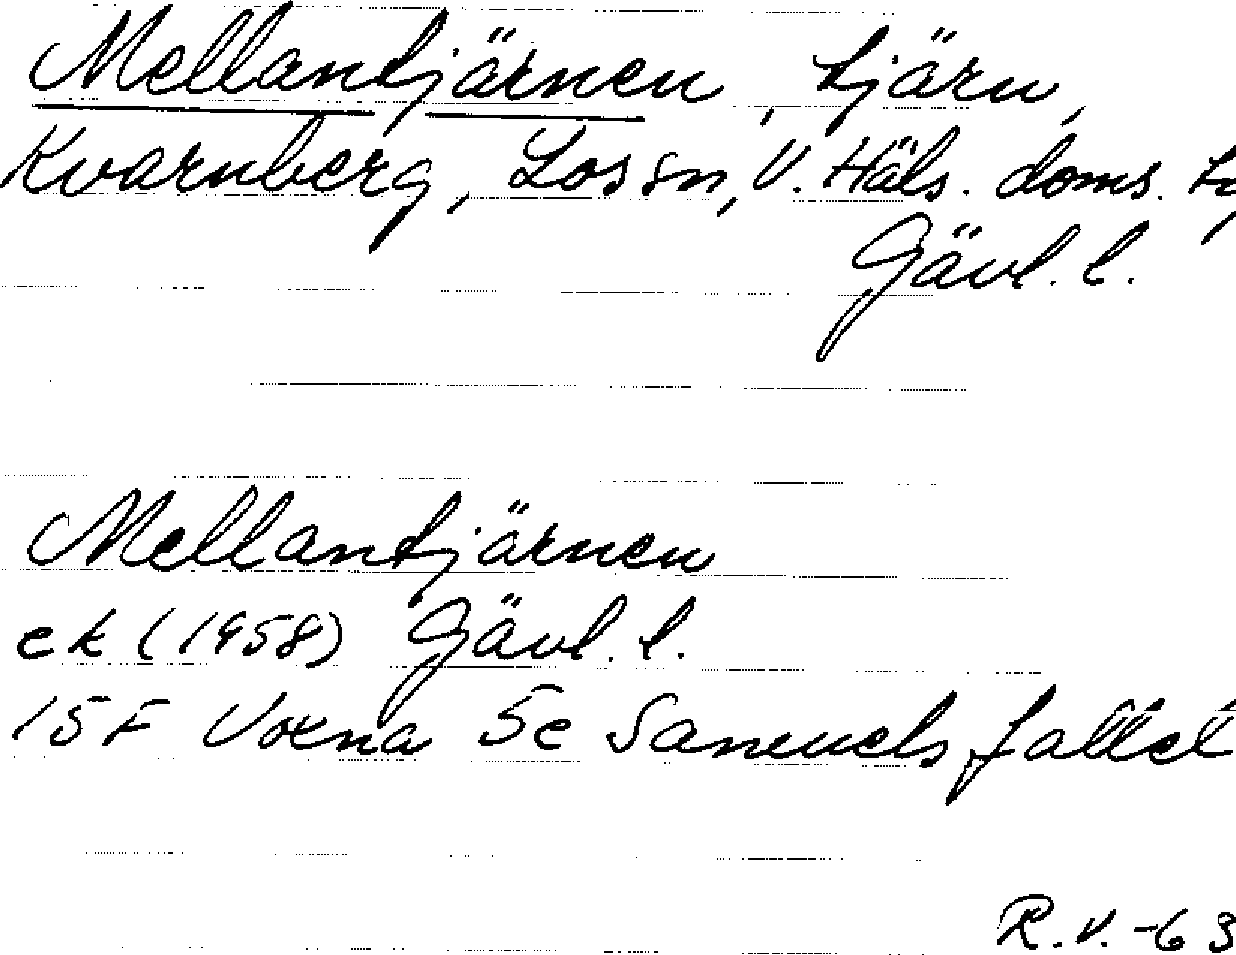 Mellantjärnen, tjärn,
Kvarnberg, Los sn, V. Häls. doms.
Gävl. l.
Mellantjärnen
ek (1958) Gävl. l.
15F Voxna 5c Samuelsfallet
R.V. -63